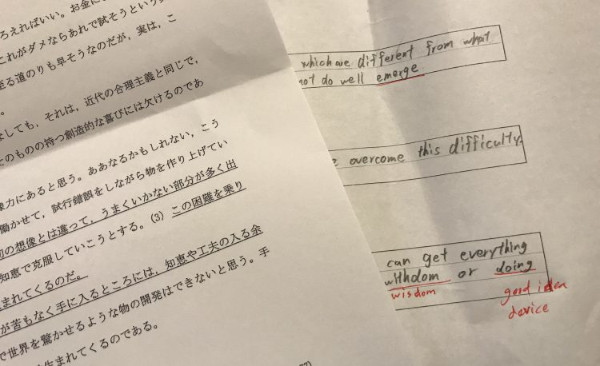 ろえればいい。お金に
これがダメならあれで試そうという。
至る道のりも早そうなのだが、実は、こ
。
なしても、それは、近代の合理主義と同じで、
そのものの持つ創造的な喜びには欠けるのであ
像力にあると思う。ああなるかもしれない、こう
働かせて、試行錯誤をしながら物を作り上げてい
の想像とは違って、うまくいかない部分が多く出
知恵で克服していこうとする。(3) この困難を乗り
まれてくるのだ。
が苦もなく手に入るところには、知恵や工夫の入る余
で世界を驚かせるような物の開発はできないと思う。手
生まれてくるのである。
which are different from what
not do well emerge
overcome this difficulty.
can get everything
withdom or doing
wisdom good idea
device